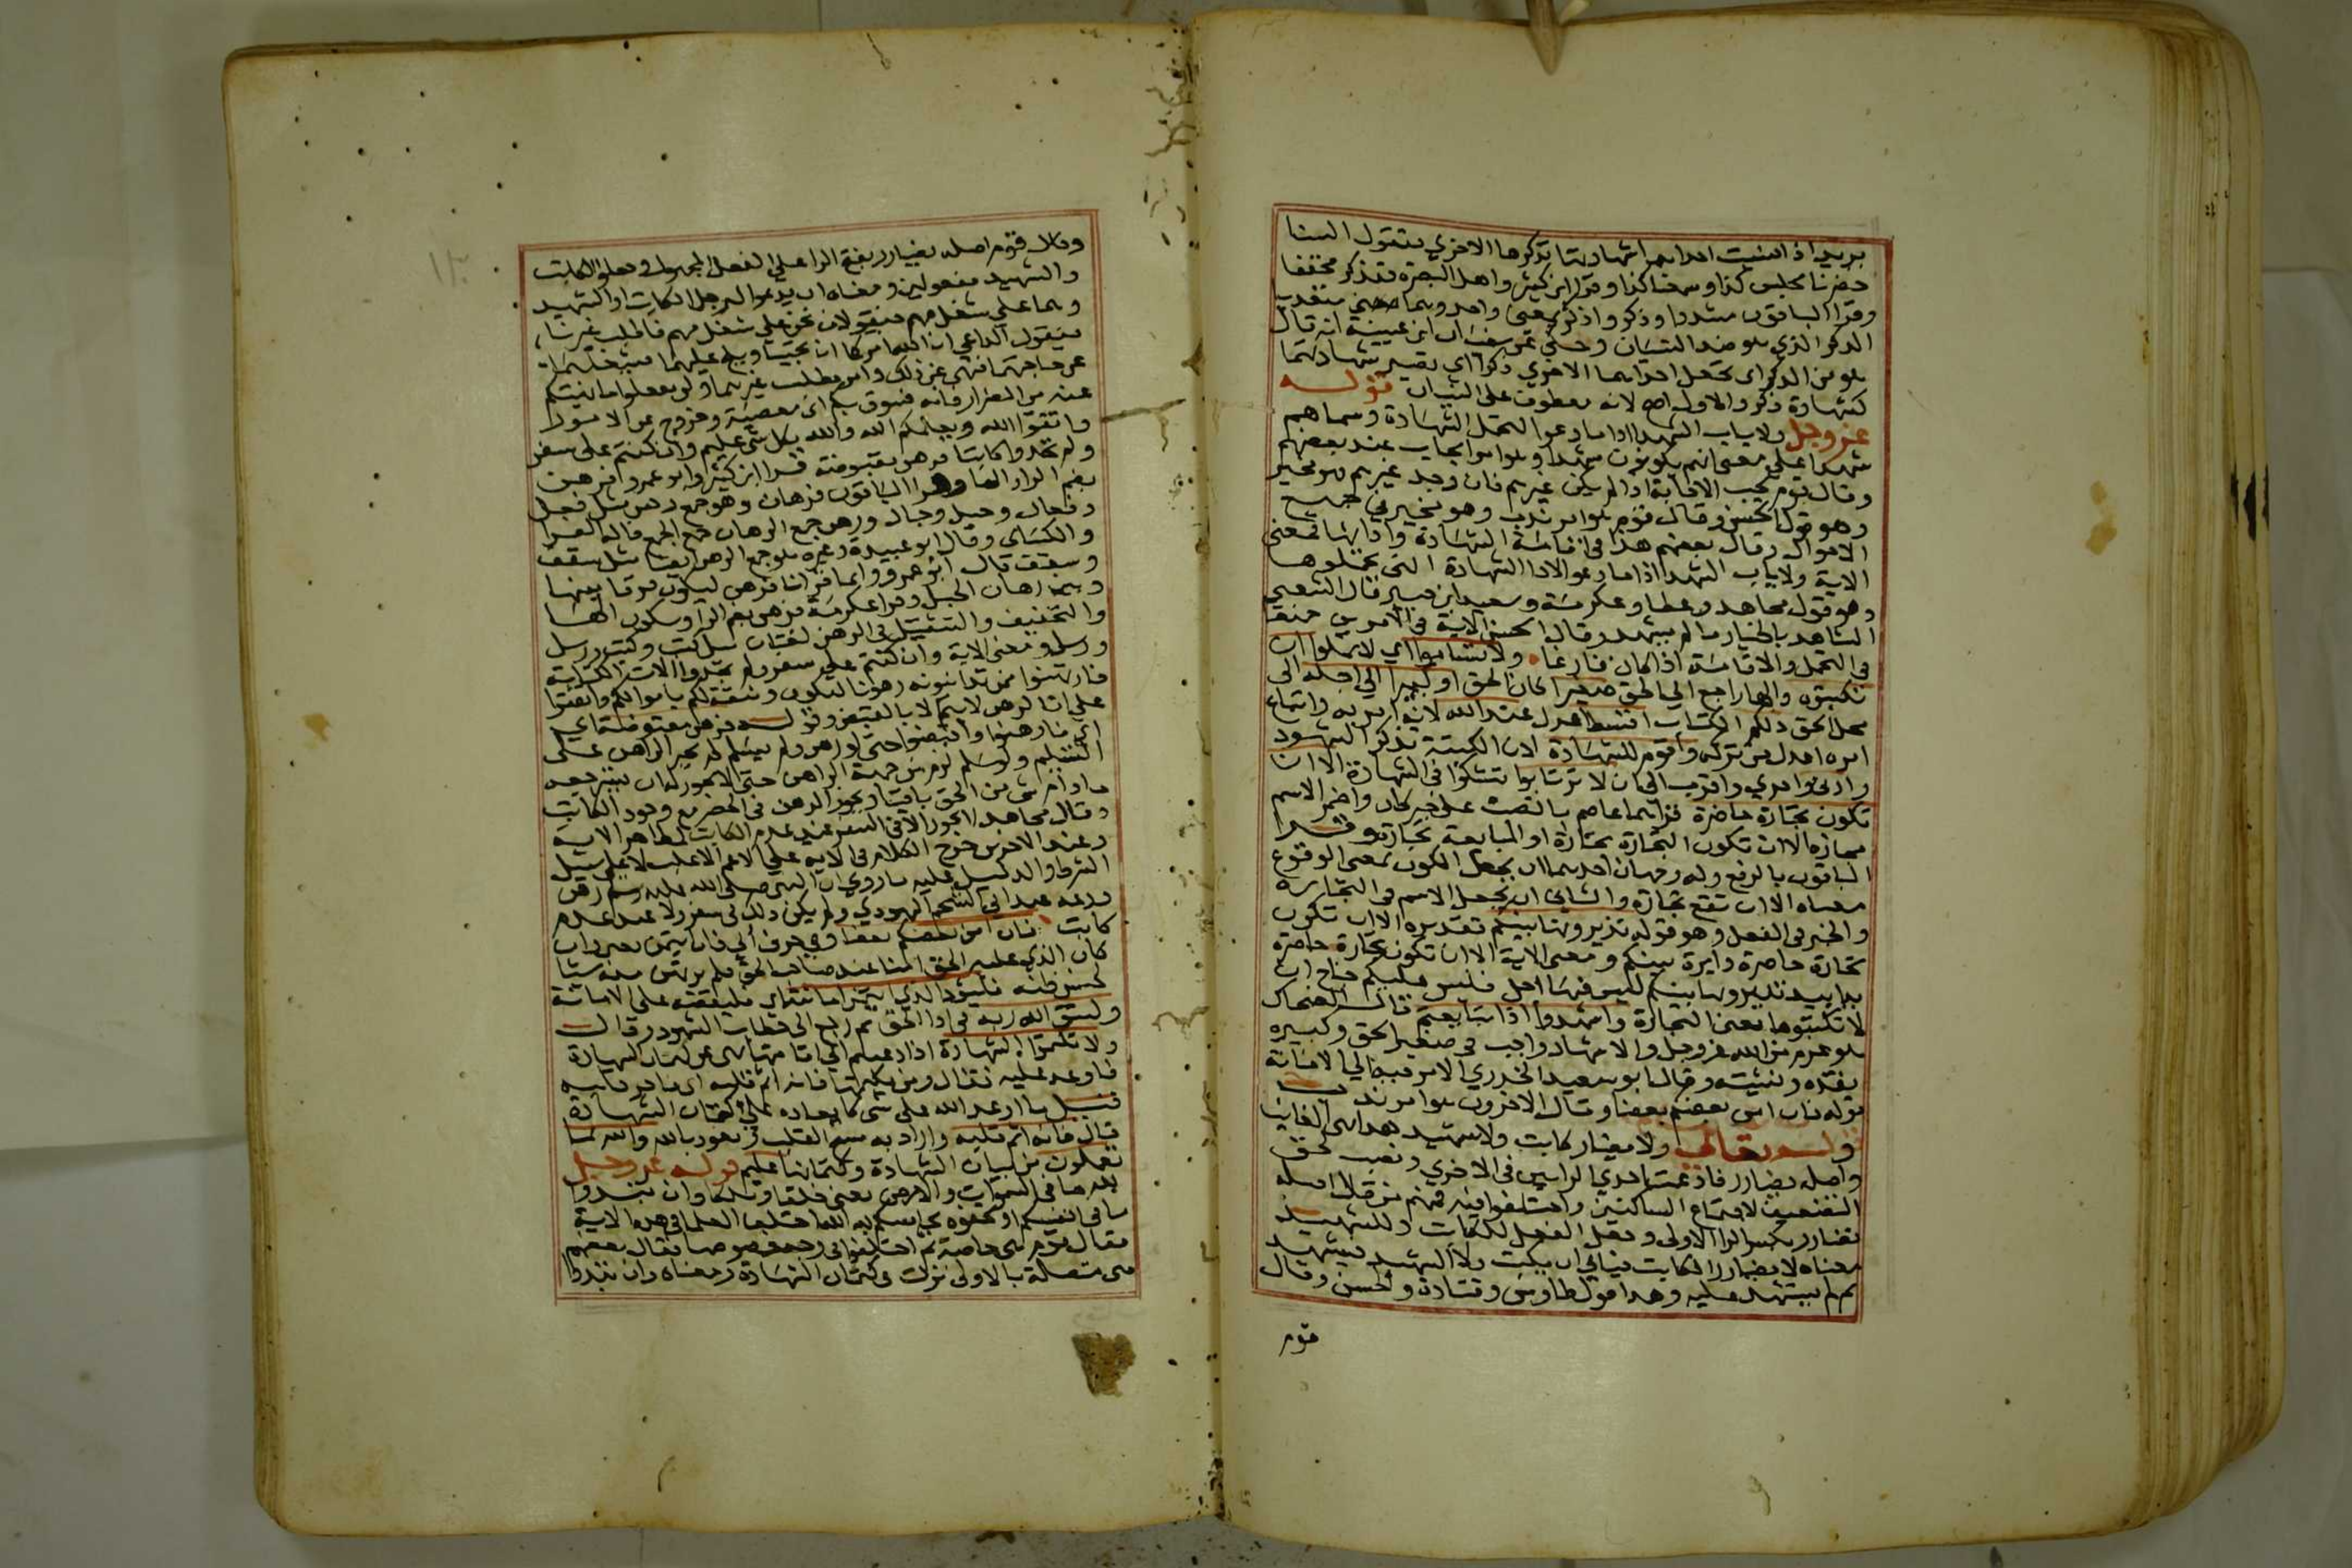 يريد اذا نسيت احداهما شهادتها تذكرها الاخري فتقول السنا
حضرنا مجلس كذا وسمعنا كذا وقرا ابن كثير واهل البصرة فتذكر مخففا
وقرا الباقون مشددا وذكر واذكر بمعني واحد وهما متعديان من
الذكر الذي هو ضد النسيان وحكي عن سفيان ابن عيينة انه قال
هو من الذكر اي تجعل احداهما الاخري ذكرا اي تصير شهادتهما
كشهادة ذكر والاول اصح لانه معطوف علي النسيان قوله
عز وجل ولا ياب الشهدا اذا ما دعوا لتحمل الشهادة وسماهم
شهدا علي معني انهم يكونون شهدا وهو امر ايجاب عند بعضهم
وقال قوم تجب الاجابة اذا لم يكن غيرهم فان وجد غيرهم فهو مخير
وهو قول الحسن وقال قوم هو امر ندب وهو مخير في جميع
الاحوال وقال بعضهم هذا في اقامة الشهادة وادايها فمعني
الاية ولا ياب الشهدا اذا ما دعوا لادا الشهادة التي تحملوها
وهو قول مجاهد وعطا وعكرمة وسعيد ابن جبير وقال الشعبي
الشاهد بالخيار ما لم يشهد وقال الحسن الاية في الامرين جميعا
في التحمل والاقامة اذا كان فارغا ولا تساموا اي لا تملوا ان
تكتبوه والها راجع الي الحق صغيرا كان الحق او كبيرا الي اجله الي
محل الحق ذلكم الكتاب اقسط اعدل عند الله لانه امر به واتباع
امره اعدل من تركه واقوم للشهادة لان الكتبة تذكر الشهود
وادني واحري واقرب الي ان لا ترتابوا تشكوا في الشهادة الا ان
تكون تجارة حاضرة قراهما عاصم بالنصب علي خبر كان واضمر الاسم
مجازه الا ان تكون التجارة تجارة او المبايعة تجارة وقرا
الباقون بالرفع وله وجهان احدهما ان يجعل الكون بمعني الوقوع
معناه الا ان تقع تجارة والثاني ان يجعل الاسم في التجارة
والخبر في الفعل وهو قوله تديرونها بينكم تقديره الا ان تكون
تجارة حاضرة دايرة بينكم ومعني الاية الا ان تكون تجارة حاضرة
يدا بيد تديرونها بينكم ليس فيها اجل فليس عليكم جناح ان
لا تكتبوها يعني التجارة واشهدوا اذا تبايعتم قال الضحاك
هو عزم من الله عز وجل والاشهاد واجب في صغير الحق وكبيره
نقده ونسيئته وقال ابو سعيد الخدري الامر فيه الي الامانة
قوله فان امن بعضكم بعضا وقال الاخرون هو امر ندب
قوله تعالي ولا يضار كاتب ولا شهيد هذا نهي الغايب
واصله يضارر فادغمت احدي الرايين في الاخري ونصب لحق
التضعيف لاجتماع الساكنين واختلفوا فيه فمنهم من قال اصله
يضارر بكسر الرا الاولي وجعل الفعل للكاتب والشهيد
معناه لا يضارر الكاتب فيابي ان يكتب ولا الشهيد فيشهد
لم يستشهد عليه وهذا قول طاوس وقتادة والحسن وقال
قوم
وقال قوم اصله يضارر بفتح الرا علي الفعل المجهول وجعلوا الكاتب
والشهيد مفعولين ومعناه ان يدعو الرجل الكاتب او الشهيد
وهما علي شغل مهم فيقولان نحن علي شغل مهم فاطلب غيرنا
فيقول الداعي ان الله امركما ان تجيبا ويلح عليهما فيشغلهما
عن حاجتهما فنهي عن ذلك وامر بطلب غيرهما وان تفعلوا ما نهيتكم
عنه من الضرار فانه فسوق بكم اي معصية وخروج عن الامر
واتقوا الله ويعلمكم الله والله بكل شي عليم وان كنتم علي سفر
ولم تجدوا كاتبا فرهن مقبوضة قرا ابن كثير وابو عمرو فرهن
بضم الرا والها وقرا الباقون فرهان وهو جمع رهن مثل بغل
وبغال وحبل وحبال ورهن جمع الرهان جمع الجمع قاله الفرا
والكساي وقال ابو عبيدة وغيره هو جمع الرهن ايضا مثل سقف
وسقف قال ابو عمرو وانما قرانا فرهن ليكون فرقا بينها
وبين رهان الخيل وقرا عكرمة فرهن بضم الرا وسكون الها
والتخفيف والتثقيل في الرهن لغتان مثل كتب وكتب ورسل
ورسل ومعني الاية وان كنتم علي سفر ولم تجدوا الات الكتابة
فارتهنوا ممن تداينونه رهونا لتكون وثيقة لكم باموالكم واتفقوا
علي ان الرهن لا يتم الا بالقبض وقوله فرهن مقبوضة اي
اي فارهنوا واقبضوا حتي لو رهن ولم يسلم لم يجبر الراهن علي
التسليم ولو سلم لزم من جهة الراهن حتي لا يجوز له ان يسترجعه
ما دام شي من الحق باقيا ويجوز الرهن في الحضر مع وجود الكاتب
وقال مجاهد لا يجوز الا في السفر عند عدم الكاتب لظاهر الاية
وعند الاخرين خرج الكلام في الاية علي الاعم الاغلب لا علي سبيل
الشرط والدليل عليه ما روي ان النبي صلي الله عليه وسلم رهن
درعه عند ابي الشحم اليهودي ولم يكن ذلك في سفر ولا عند عدم
كاتب فان امن بعضكم بعضا وفي حرف ابي فان ايتمن يعني فان
كان الذي عليه الحق امينا عند صاحب الحق فلم يرتهن منه شيا
لحسن ظنه فليود الذي ايتمن امانته اي فليقضه علي الامانة
وليتق الله ربه في ادا الحق ثم رجع الي خطاب الشهود وقال
ولا تكتموا الشهادة اذا دعيتم الي اقامتها نهي عن كتمان الشهادة
فاوعد عليه فقال ومن يكتمها فانه اثم قلبه اي فاجر قلبه
قيل ما اوعد الله علي شي كايعاده علي كتمان الشهادة
قال فانه اثم قلبه واراد به مسخ القلب نعوذ بالله والله بما
تعملون من بيان الشهادة وكتمانها عليم قوله عز وجل
لله ما في السموات والارض يعني خلقا وملكا وان تبدوا
ما في انفسكم او تخفوه يحاسبكم به الله اختلف العلما في هذه الاية
فقال قوم هي خاصة ثم اختلفوا في وجه خصوصها فقال بعضهم
هي متصلة بالاولي نزلت في كتمان الشهادة ومعناه وان تبدوا